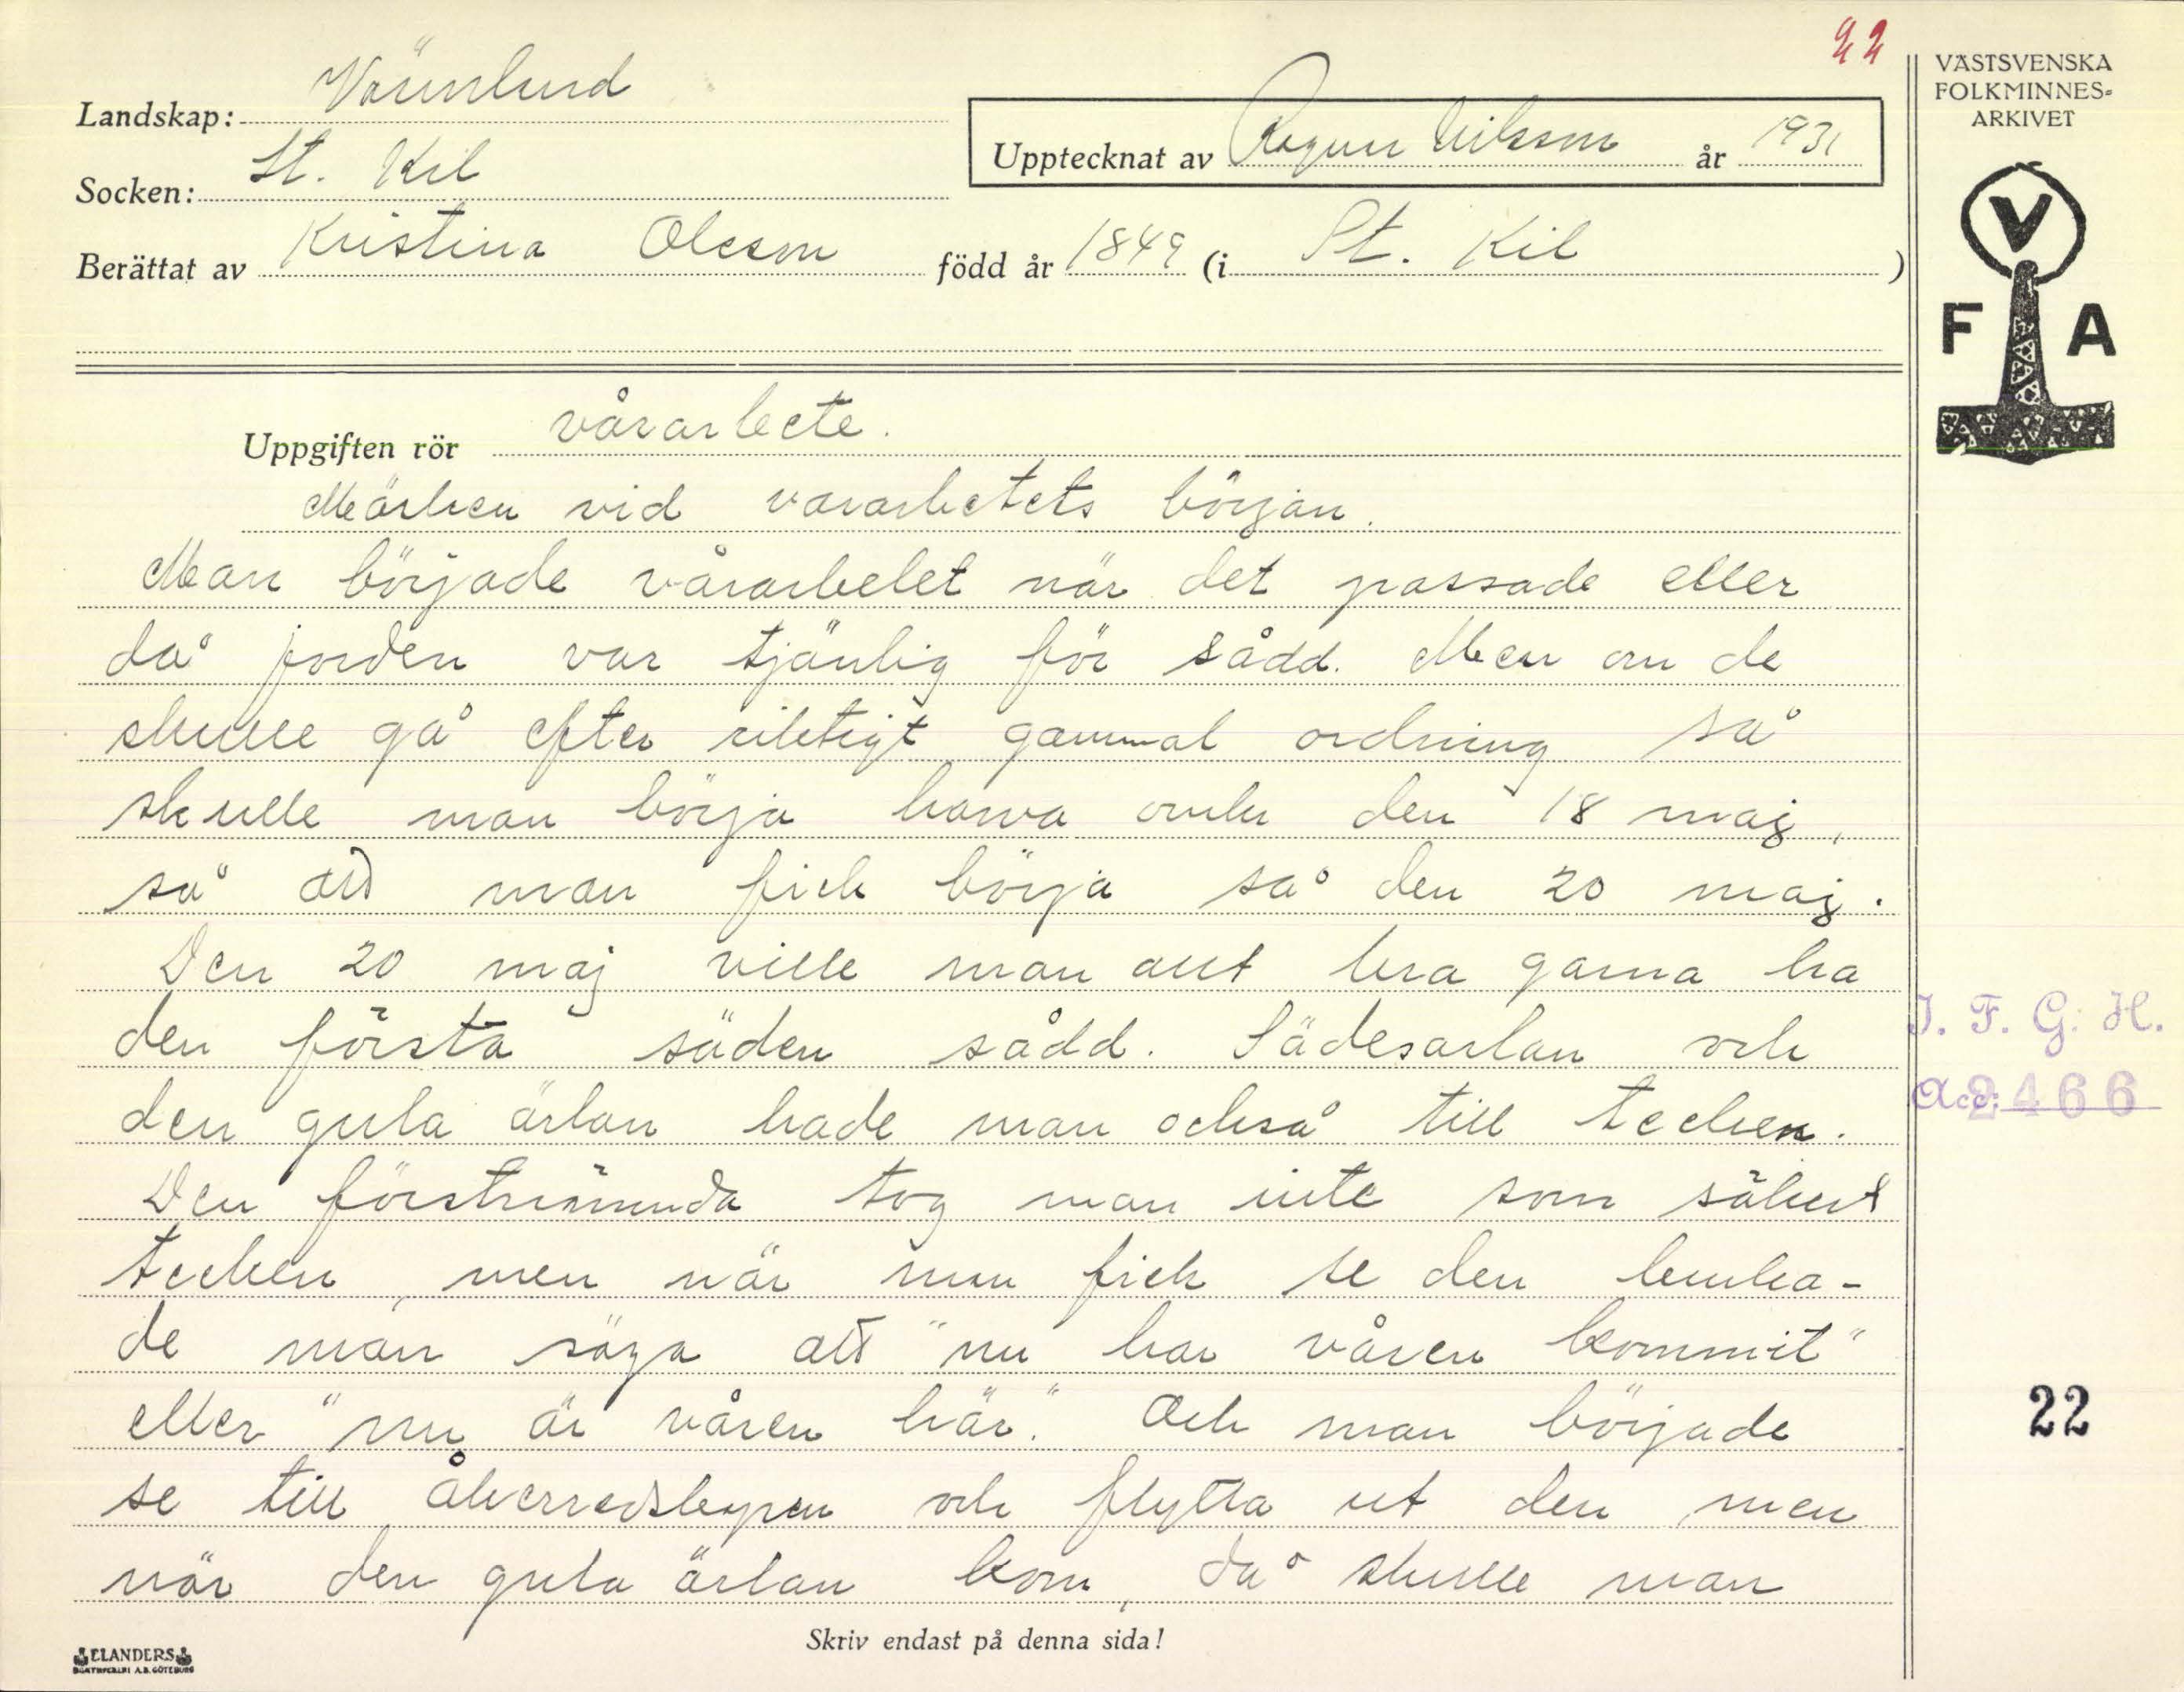 22
VÄSTSVENSKA
FOLKMINNES-
ARKIVET
Landskap: Värmland
Upptecknat av Ragnar Nilsson år 1931
Socken: St. Kil
Berättat av Kristina Olsson född år 1849 (i St. Kil)
V
F A
Uppgiften rör vårarbete.
Märken vid vårarbetets början.
Man började vårarbetet när det passade eller
då jorden var tjänlig för sådd. Men om de
skulle gå efter riktigt gammal ordning så
skulle man börja harva omkr den 18 maj,
så att man fick börja så den 20 maj.
Den 20 maj ville man allt bra gärna ha
den första säden sådd. Sädesärlan och
den gula ärlan hade man också till tecken.
Den förstnämnda tog man inte som säkert
tecken, men när man fick se den bruka-
de man säga att "nu har våren kommit"
eller "nu är våren här." Och man började
se till åkerredskapen och flytta ut den, men
när den gula ärlan kom, då skulle man
Skriv endast på denna sida!
J. F. G. H.
Acc: 2466
22
ELANDERS
BOKTRYCKERI A.B. GÖTEBORG